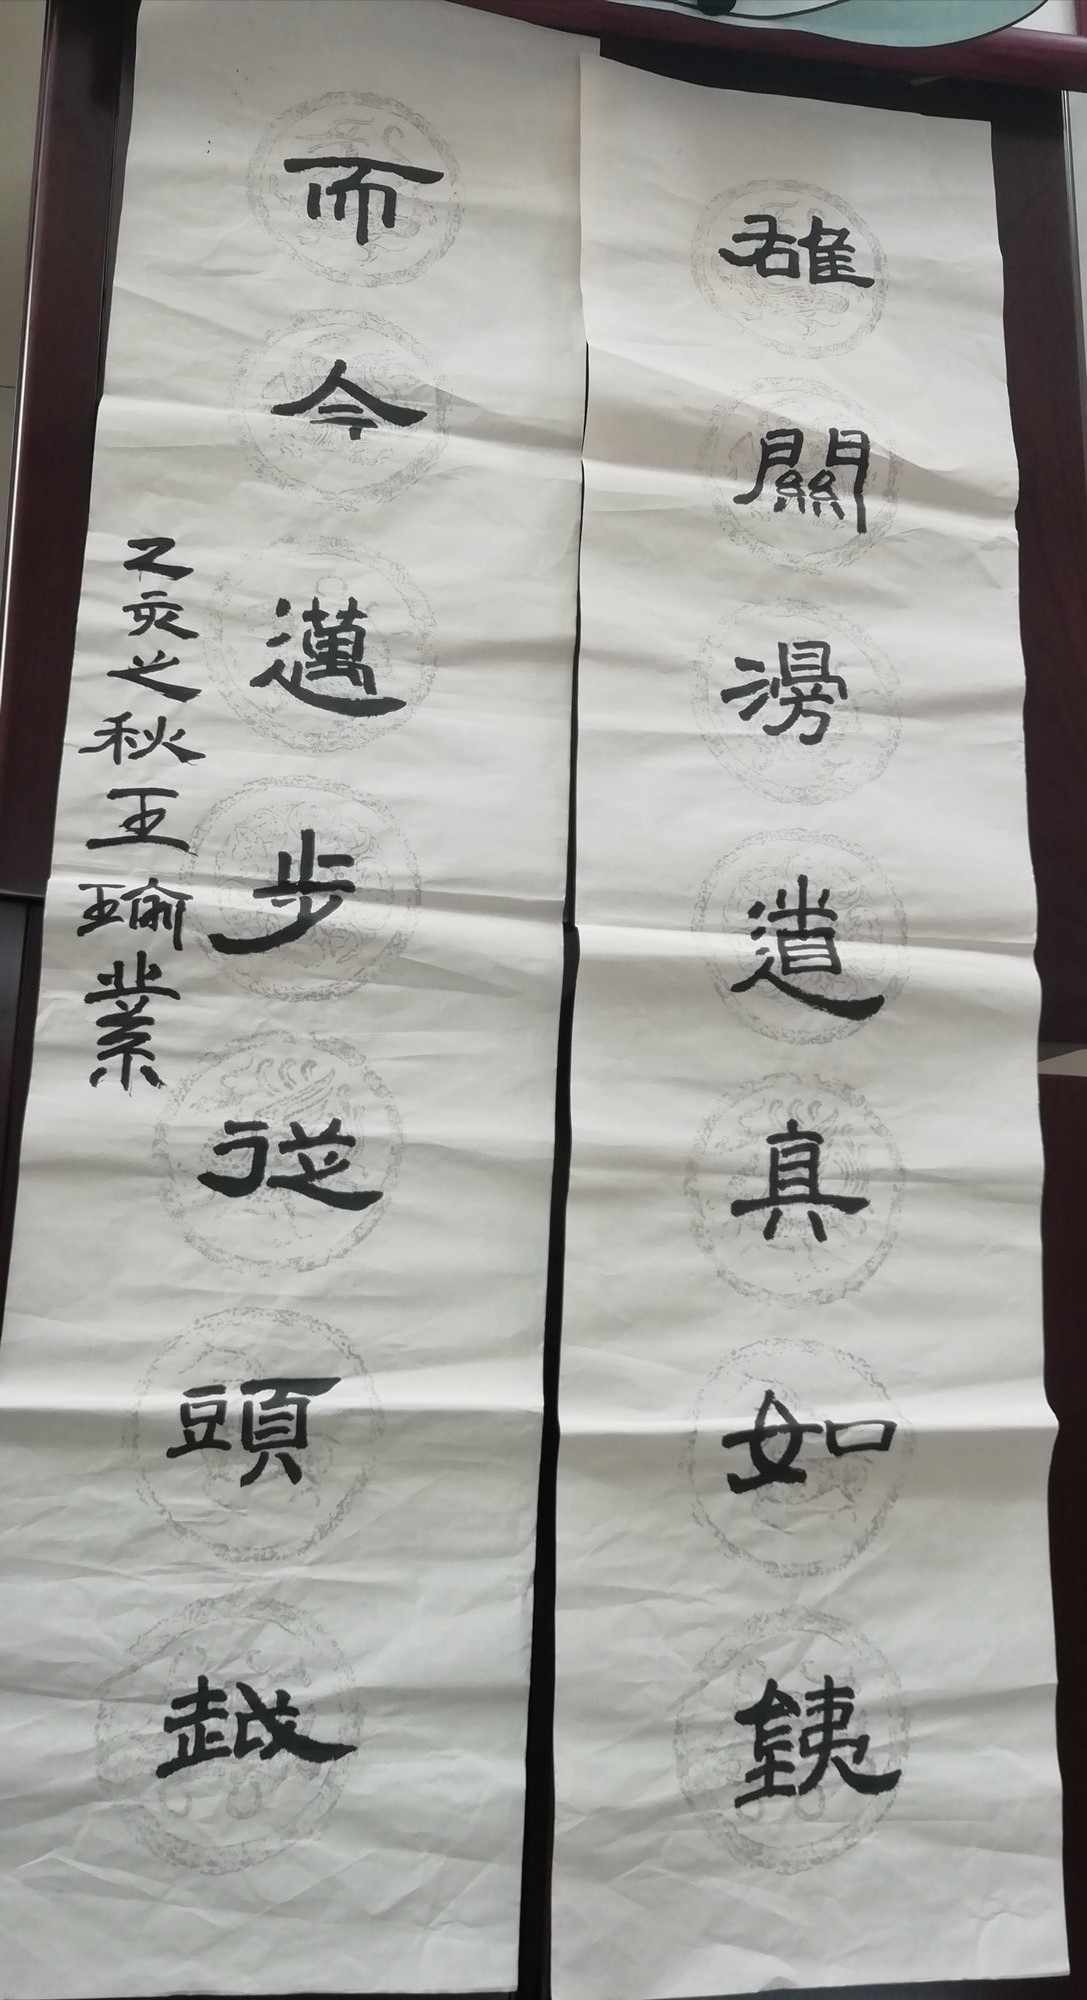 雄關漫道真如鐵
而今邁步從頭越
乙亥之秋王瑜業